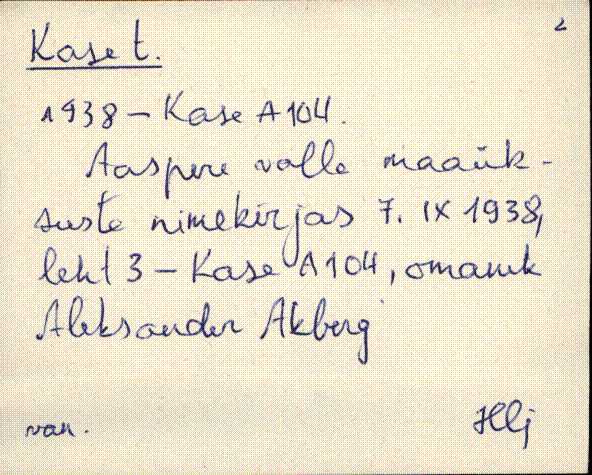 2
Kase t.
1938 – Kase A 104.
Aaspere valla maaük-
suste nimekirjas 7. IX 1938,
leht 3 – Kase A 104, omanik
Aleksander Akberg
van. Hlj